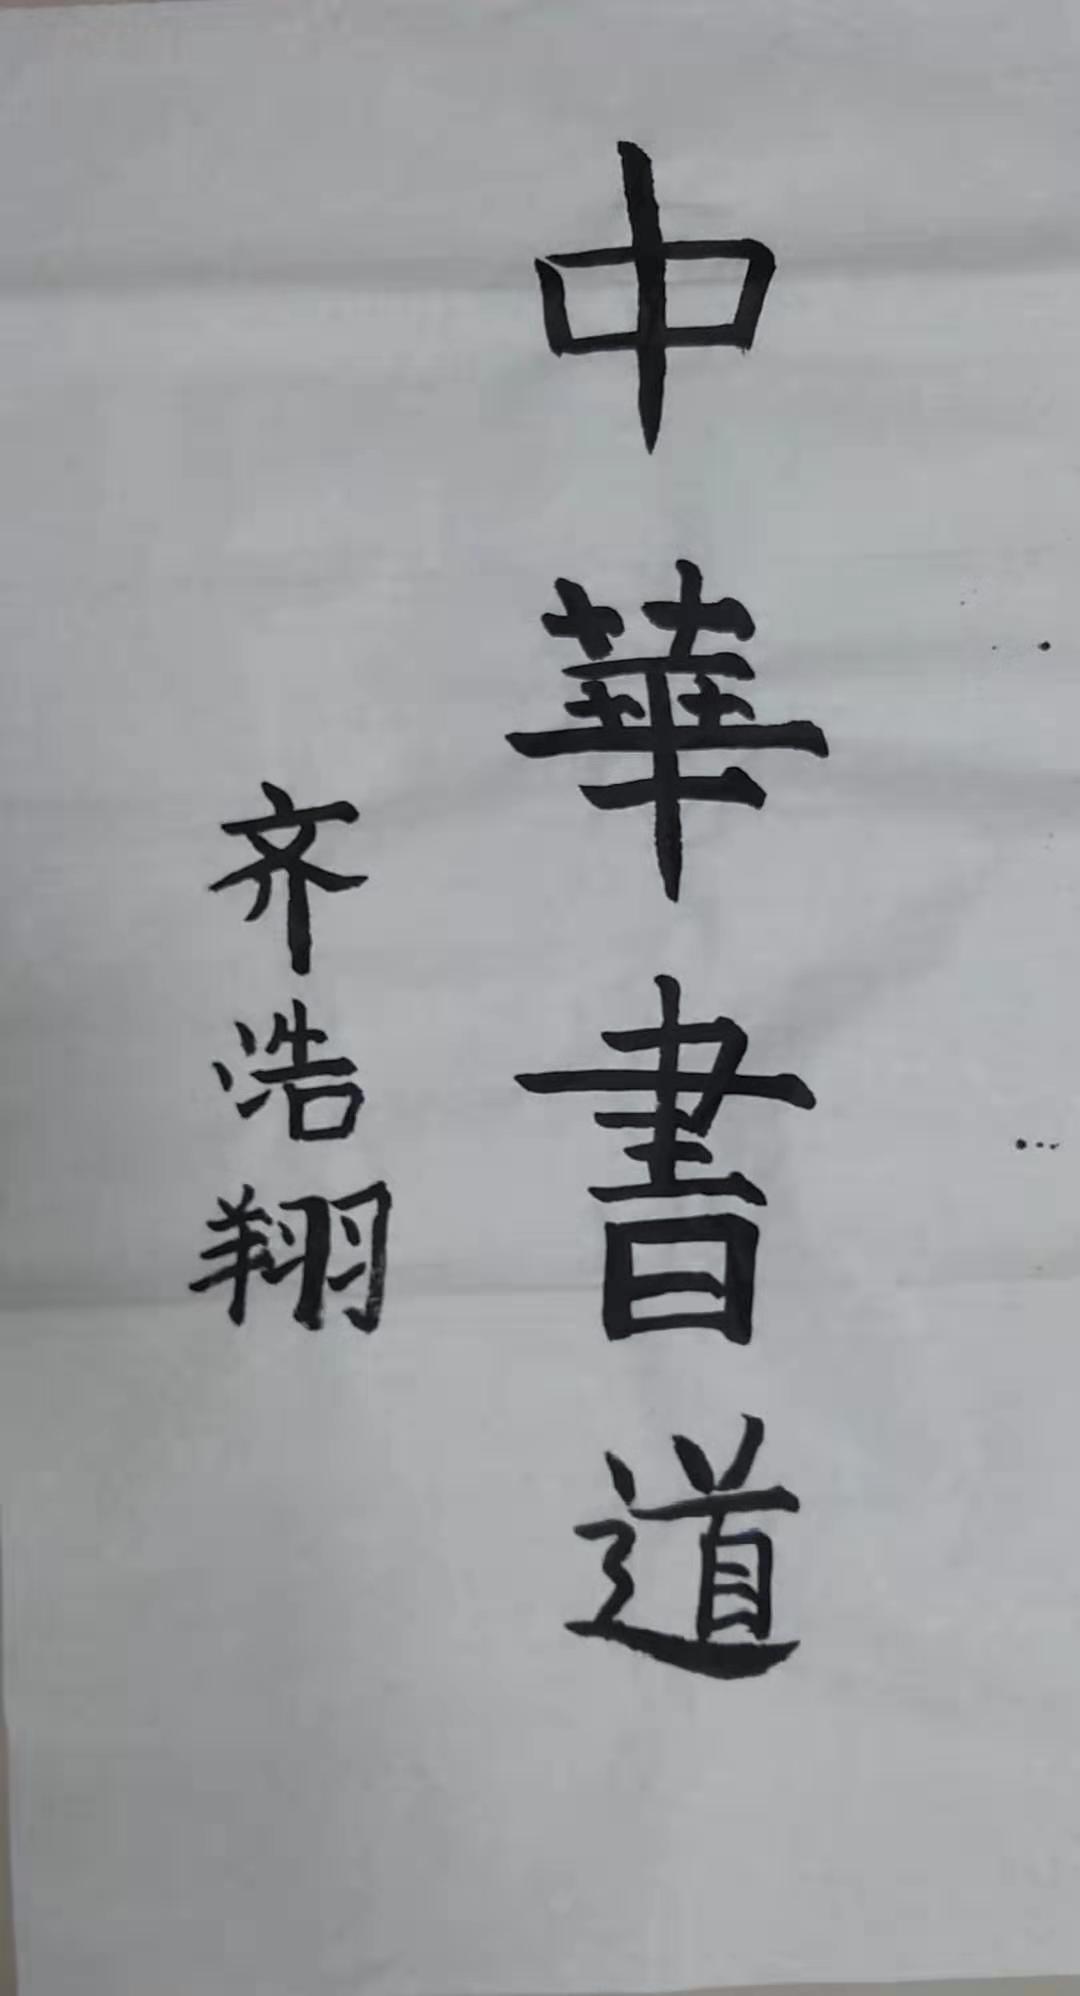 中華書道
齐浩翔